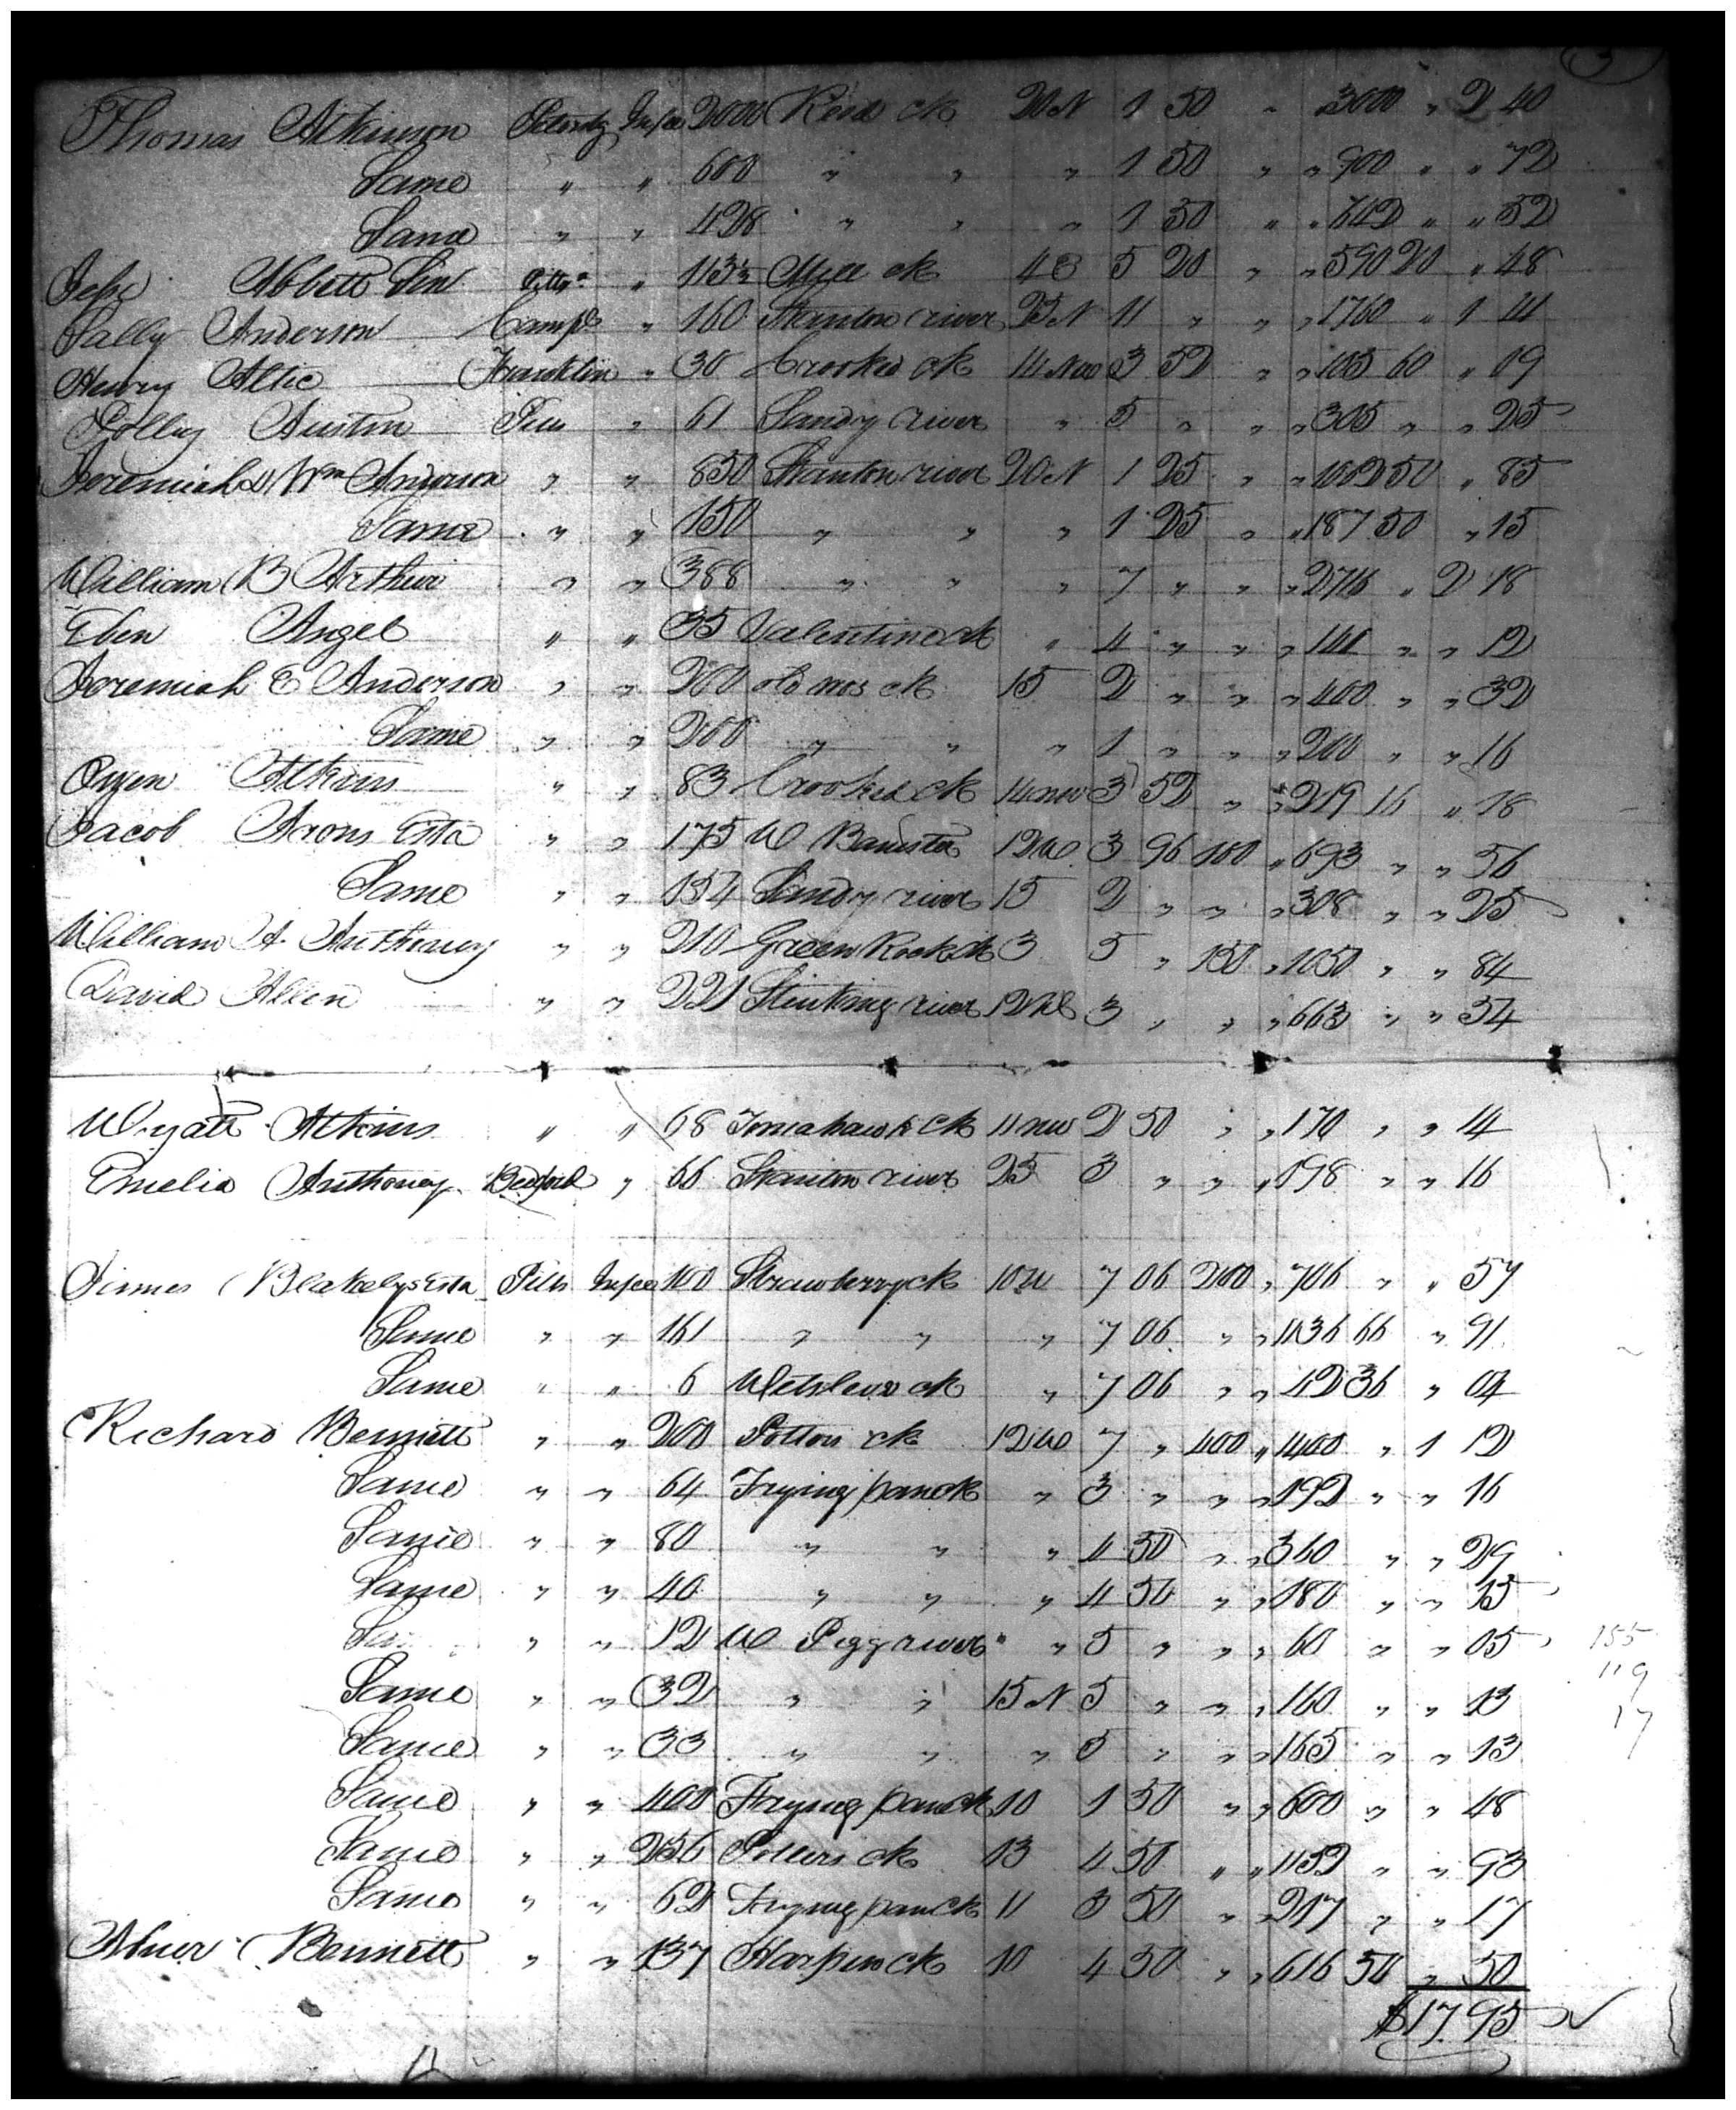 3
Thomas Atkinson Petersbg In fee 2000 Reed ck 20 N 1 50 " 3000 " 2 40
Same " " 600 " " " 1 50 " " 900 " " 72
Same " " 428 " " " 1 50 " " 642 " " 52
Abbett Sen Pittsa " 113½ Mill ck 4 5 20 " " 590 20 " 48
Sally Anderson Camp " 160 Stanton river 25 N 11 " " " 1760 " 1 41
Henry Altic Franklin " 30 Crooked ck 14 NW 3 52 " " 105 60 " 09
Polley Austin Pitts " 61 Sandy river " 5 " " " 305 " " 25
Jeremiah & Wm Anderson " " 850 Stanton river 20 N 1 25 " " 1062 50 " 85
Same " " 150 " " " 1 25 " " 187 50 " 15
William B Arthur " " 388 " " " 7 " " " 2716 " 2 18
Eben Angel " " 35 Valentine ck " 4 " " " 140 " " 12
Jeremiah E Anderson " " 200 old mos ck 15 2 " " " 400 " " 32
Same " " 200 " " " 1 " " " 200 " " 16
Owen Atkins " " 83 Crooked ck 14 NW 3 52 " " 219 16 " 18
Jacob Arons Esta " " 175 W Banister 12 W 3 96 100 " 693 " " 56
Same " " 154 Sandy river 15 2 " " " 308 " " 25
William A. Anthony " " 210 Green Rock ck 3 5 " 150 " 1050 " " 84
David Allen " " 221 Stinking river 12 3 " " " 663 " " 54
Wyatt Atkins " " 68 Tomahawk ck 11 NW 2 50 " " 170 " " 14
Emelia Anthoney Bedford " 66 Stanton river 25 3 " " " 198 " " 16
James Blakelys Esta Pitts In fee 100 Strawberry ck 10 W 7 06 200 " 706 " " 57
Same " " 161 " " " 7 06 " " 1136 66 " 91
Same " " 6 Wetsleve ck " 7 06 " " 42 36 " 04
Richard Bennett " " 200 Potton ck 12 W 7 " 400 " 1400 " 1 12
Same " " 64 Frying pan ck " 3 " " " 192 " " 16
Same " " 80 " " " 4 50 " " 360 " " 29
Same " " 40 " " " 4 50 " " 180 " " 15
" " 12 W Pigg river " " 5 " " " 60 " " 05 155
Same " " 32 " " 15 N 5 " " " 160 " " 13 119
Same " " 33 " " " 5 " " " 165 " " 13 17
Same " " 400 Frying pan ck 10 1 50 " " 600 " " 48
Same " " 256 ck 13 4 50 " " 1152 " " 93
Same " " 62 Frying pan ck 11 3 50 " " 217 " " 17
Abner Bennett " " 137 Harpin ck 10 4 50 " " 616 50 " 50
$17.95